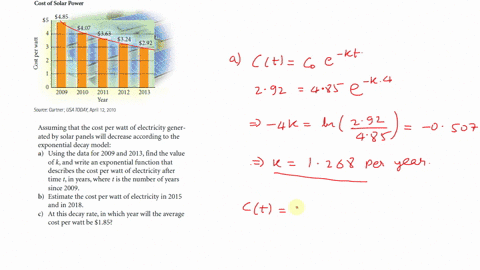 Cost of Solar Power
$4.85
$4.07
$3.63
$3.24
$2.92
Cost per watt
$5
4
3
2
1
0
2009 2010 2011 2012 2013
Year
Source: Gartner; USA TODAY, April 12, 2010
Assuming that the cost per watt of electricity gener-
ated by solar panels will decrease according to the
exponential decay model:
a) Using the data for 2009 and 2013, find the value
of k, and write an exponential function that
describes the cost per watt of electricity after
time t, in years, where t is the number of years
since 2009.
b) Estimate the cost per watt of electricity in 2015
and in 2018.
c) At this decay rate, in which year will the average
cost per watt be $1.85?
a) C(t) = C₀ e^{-kt}
2.92 = 4.85 e^{-k.4}
⇒ -4k = ln(2.92/4.85) = -0.507
⇒ k = 1.268 per year.
C(t) =